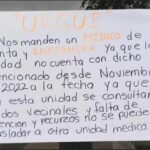 "URGUE"
Nos manden un MEDICO de
nta y ENFERMERA ya que la
dad no cuenta con dicho
ncionado desde Noviembre
2022 a la fecha ya que
n esta unidad se consultan
dos vecinales y falta de
encion y recursos no se puede
sladar a otra unidad medica.